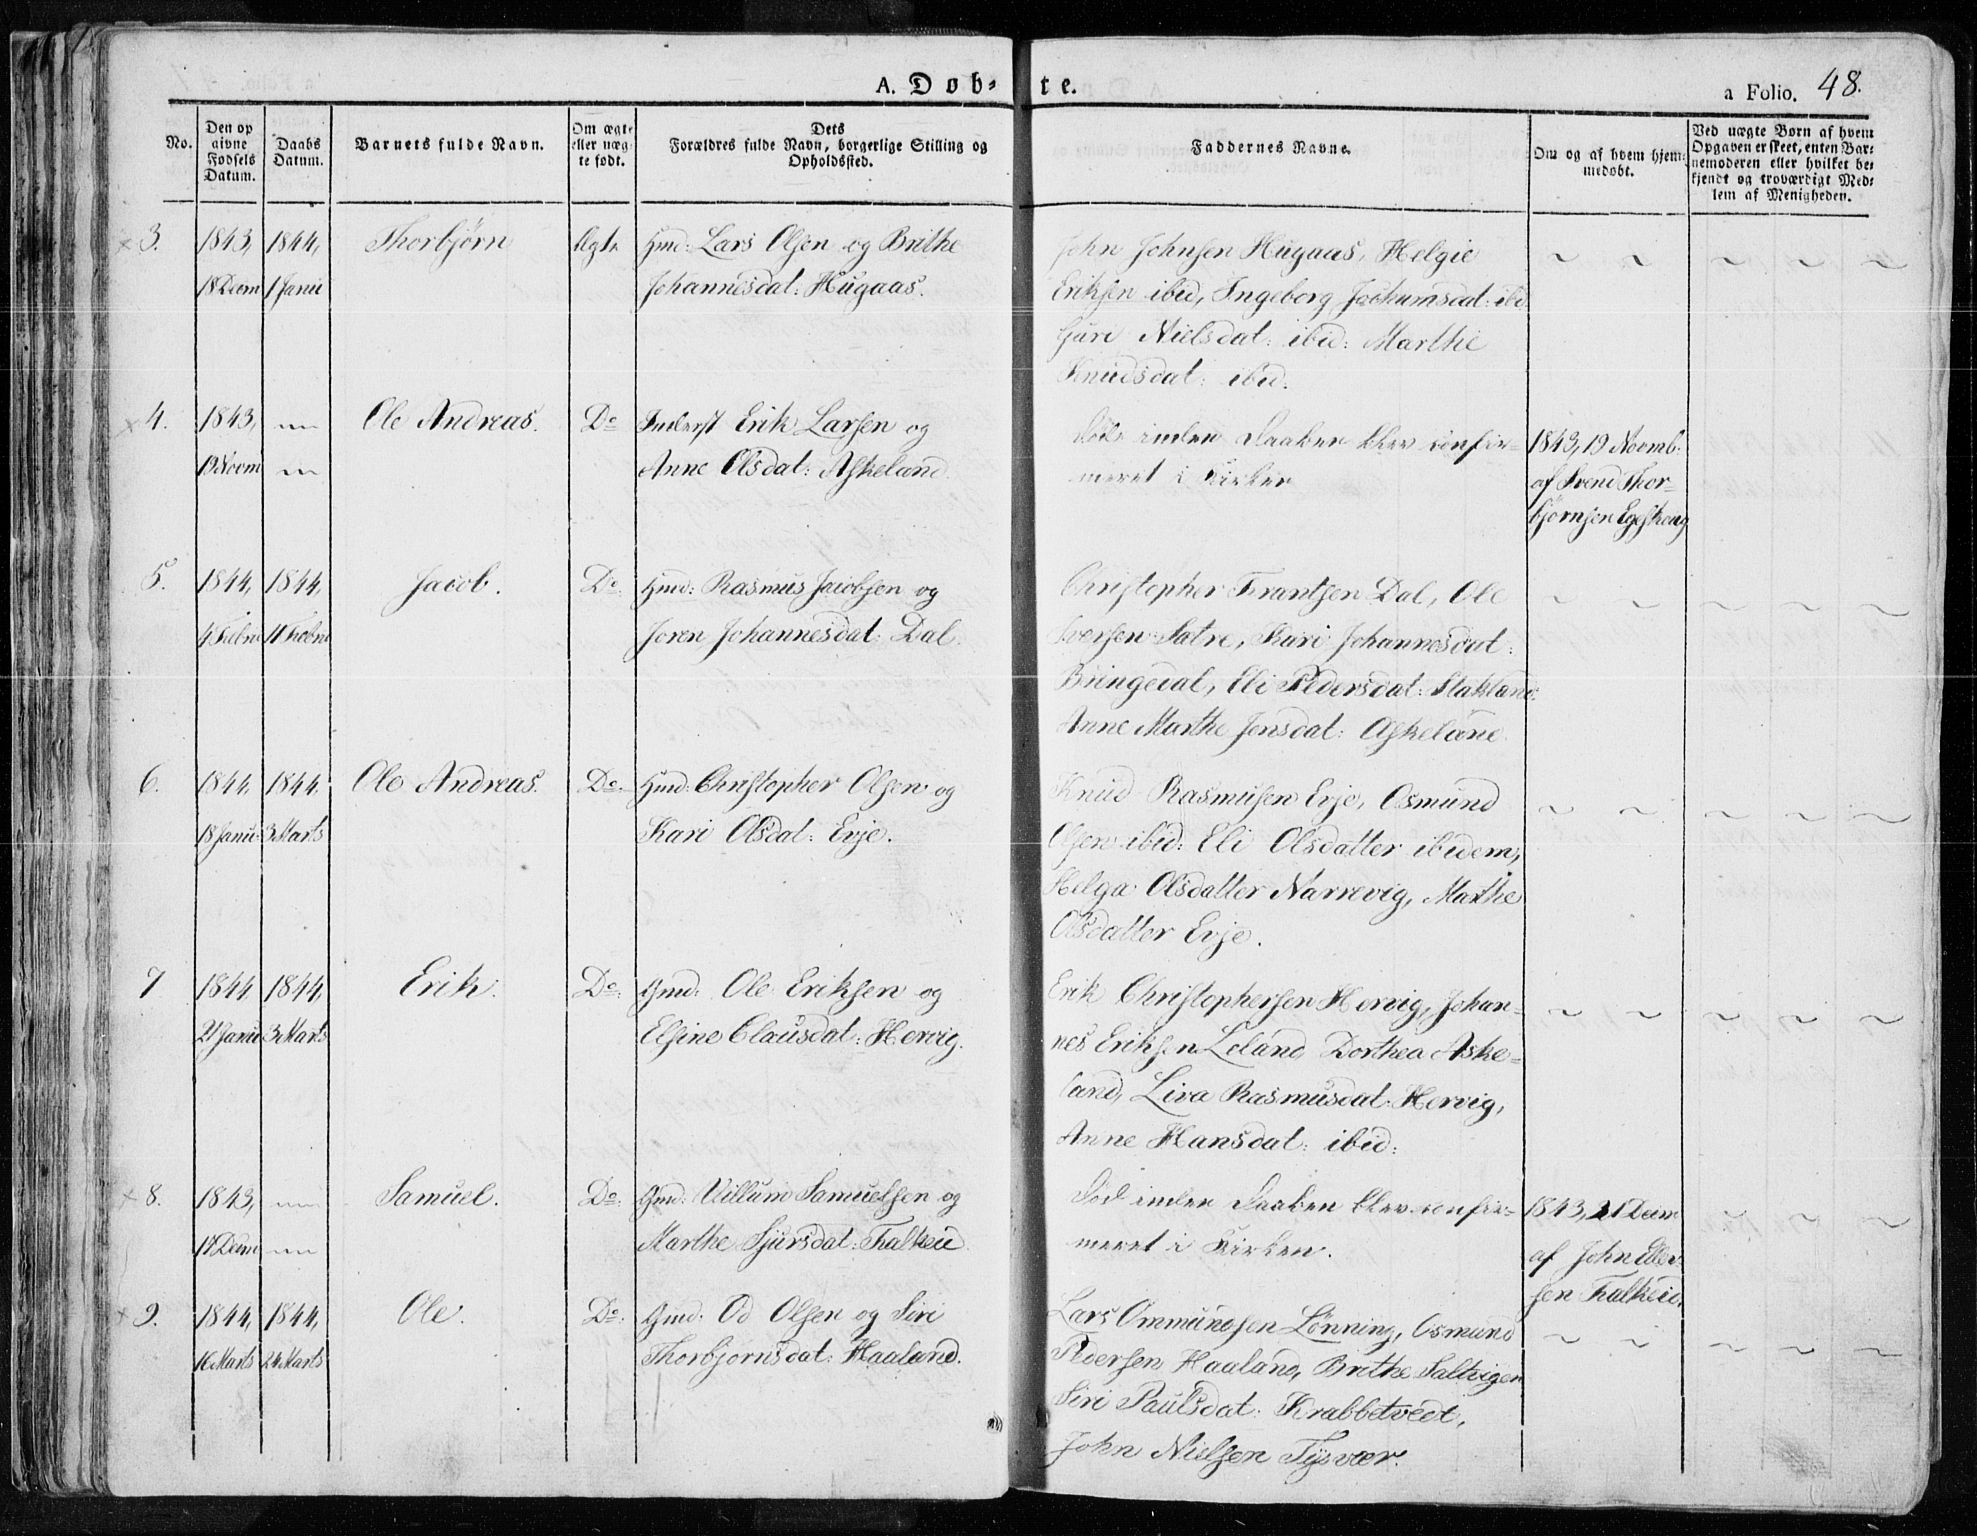 A. Døb-te.
a Folio. 48.
No.
Den op
givne
Fødsels
Datum.
Daabs
Datum.
Barnets fulde Navn.
Om ægte
eller uæg-
te født.
Dets
Forældres fulde Navn, borgerlige Stilling og
Opholdssted.
Faddernes Navne.
Om og af hvem hjem-
medøbt.
Ved uægte Børn af hvem
Opgaven er skeet, enten Bar-
nemoderen eller hvilket be-
kjendt og troværdigt Med-
lem af Menigheden.
× 3. 1843, 1844, Thorbjørn Ægte Gmd: Lars Olsen og Brithe
18 Decm 1 Janu Johannesdat: Hugaas.
John Johnsen Hugaas, Helgie
Eriksen ibid, Ingeborg Jochumsdat: ibd
Guri Nielsdat: ibid: Marthe
Knudsdat: ibid.
× 4. 1843, Ole Andreas. Do Inderst Erik Larsen og
19 Novm Anne Olsdat: Askeland.
Døde inden Daaben blev confir-
meret i Kirken
1843, 19 Novmb:
af Svend Thor-
bjørnsen Egeskoug
5. 1844, 1844, Jacob. Do Gmd: Rasmus Jacobsen og
4 Febr 11 Febr Joren Johannesdat: Dal.
Christopher Frantsen Dal, Ole
Iversen Satre, Kari Johannesdat:
Bringedal, Eli Pedersdat: Stakland:
Anne Marthe Jensdat: Askeland
6. 1844, 1844. Ole Andreas. Do: Gmd: Christopher Olsen og
18 Janu 3 Marts Kari Olsdat: Evje.
Knud Rasmusen Evje, Osmund
Olsen ibid: Eli Olsdatter ibidem,
Helga Olsdatter Narrevig, Marthe
Olsdatter Evje.
7 1844 1844, Erik. Do: Gmd: Ole Eriksen og
21 Janu 3 Marts Elsine Clausdat: Hervig.
Erik Christophersen Hervig, Johan-
nes Eriksen Leland Dorthea Aske-
land, Liva Rasmusdat: Hervig,
Anne Hansdat: ibid:
× 8. 1843, Samuel. Do: Gmd: Villum Samuelsen og
Decm Marthe Sjursdat: Falkeid.
Død inden Daaben blev confir-
meret i Kirken.
1843, 21 Decm
af John
sen Falkeid.
× 9. 1844, 1844, Ole. Do: Gmd: Od Olsen og Siri
16 Marts 24 Marts Thorbjørnsdat: Haaland.
Lars Ommundsen Lønning, Osmund
Pedersen Haaland, Brithe Saltvigen
Siri Paulsdat: Krabbetvedt,
John Nielsen Tysvær.